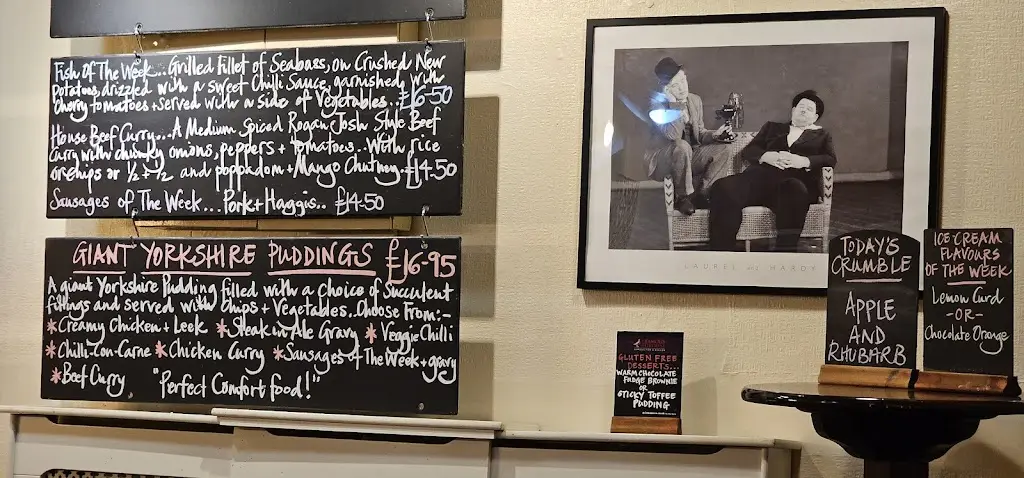 Fish Of The Week... Grilled fillet of Seabass, on Crushed New
potatoes, drizzled with a sweet Chilli Sauce, garnished, with
Cherry tomatoes + Served with a side of Vegetables.. £16-50
House Beef Curry... A Medium Spiced Rogan Josh Style Beef
Curry with chunky onions, peppers + tomatoes.. With rice
or chips or ½ + ½ and poppadom + Mango Chutney. £14-50
Sausages Of The Week... Pork + Haggis.. £14-50
GIANT YORKSHIRE PUDDINGS £16-95
A giant Yorkshire Pudding filled with a choice of Succulent
fillings and served with Chips + Vegetables.. Choose From:-
* Creamy Chicken + Leek * Steak in Ale Gravy * Veggie Chilli
* Chilli-Con-Carne * Chicken Curry * Sausages of The Week + gravy
* Beef Curry "Perfect Comfort food!"
LAUREL and HARDY
GLUTEN FREE
DESSERTS...
WARM CHOCOLATE
FUDGE BROWNIE
OR
STICKY TOFFEE
PUDDING
TODAY'S
CRUMBLE
APPLE
AND
RHUBARB
ICE-CREAM
FLAVOURS
OF THE WEEK
Lemon Curd
-OR-
Chocolate Orange